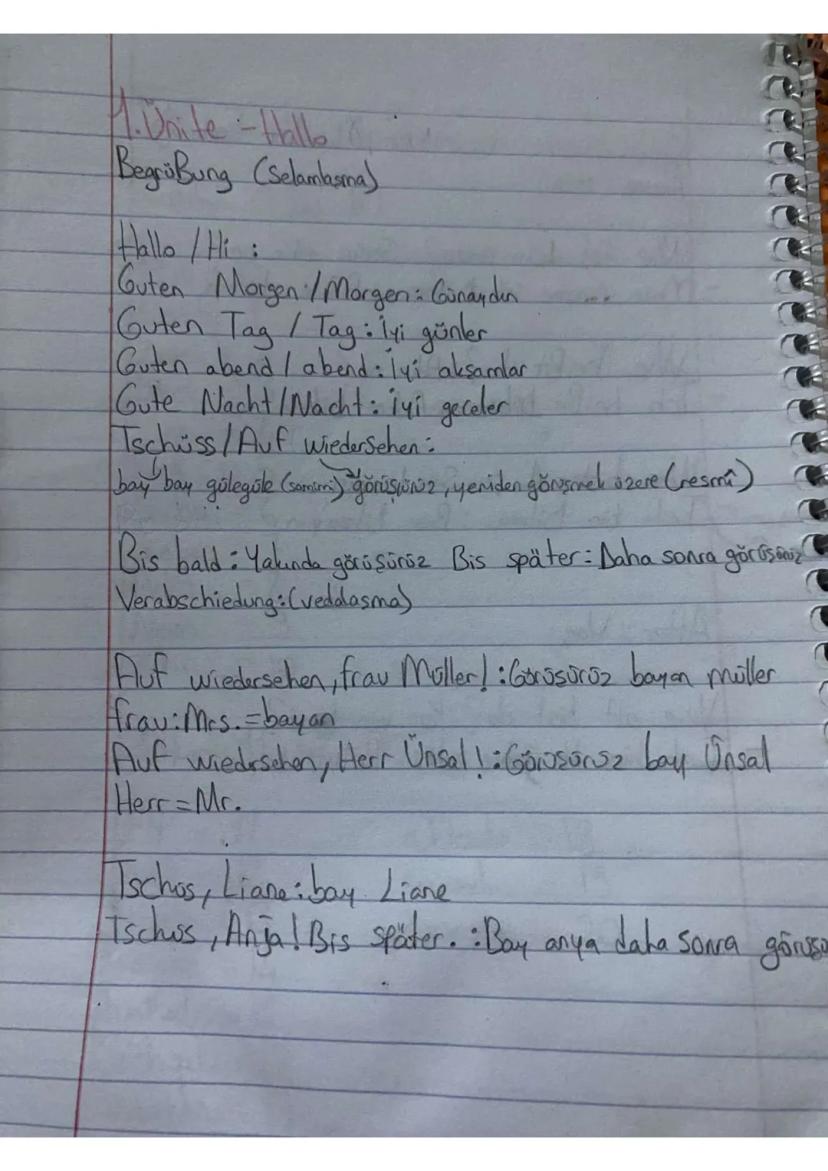 1.Ünite - Hallo
Begrüßung (Selamlaşma)
Hallo / Hi :
Guten Morgen / Morgen : Günaydın
Guten Tag / Tag : iyi günler
Guten abend / abend : İyi akşamlar
Gute Nacht / Nacht : iyi geceler
Tschüss / Auf wiedersehen :
bay bay gülegüle (samimi) görüşürüz, yeniden görüşmek üzere (resmî)
Bis bald : Yakında görüşürüz Bis später : Daha sonra görüşürüz
Verabschiedung : (veddaşma)
Auf wiedersehen, frau Müller! : Görüşürüz bayan müller
frau : Mrs. = bayan
Auf wiedersehen, Herr Ünsal! : Görüşürüz bay Ünsal
Herr = Mr.
Tschüs, Liane : bay Liane
Tschüs, Anja! Bis später. : Bay anya daha sonra görüşü